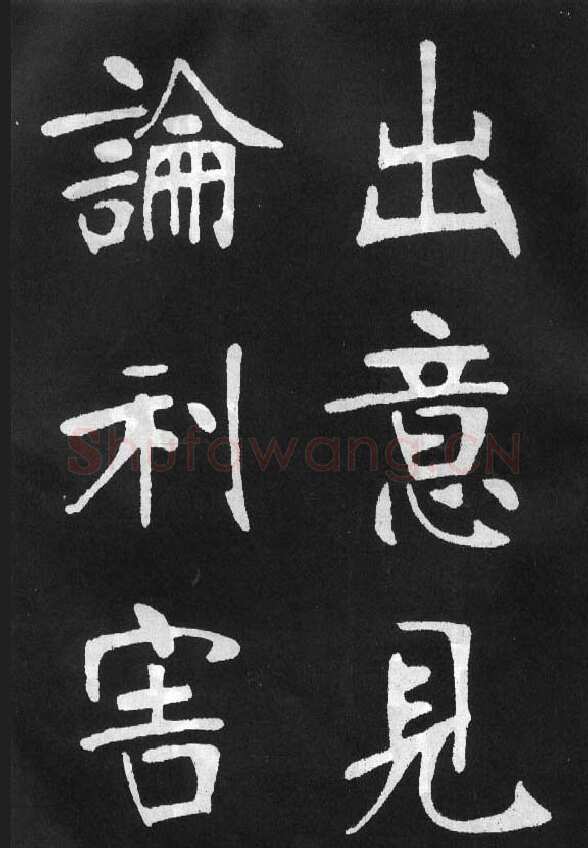 出意見
論利害
Shufawang.CN